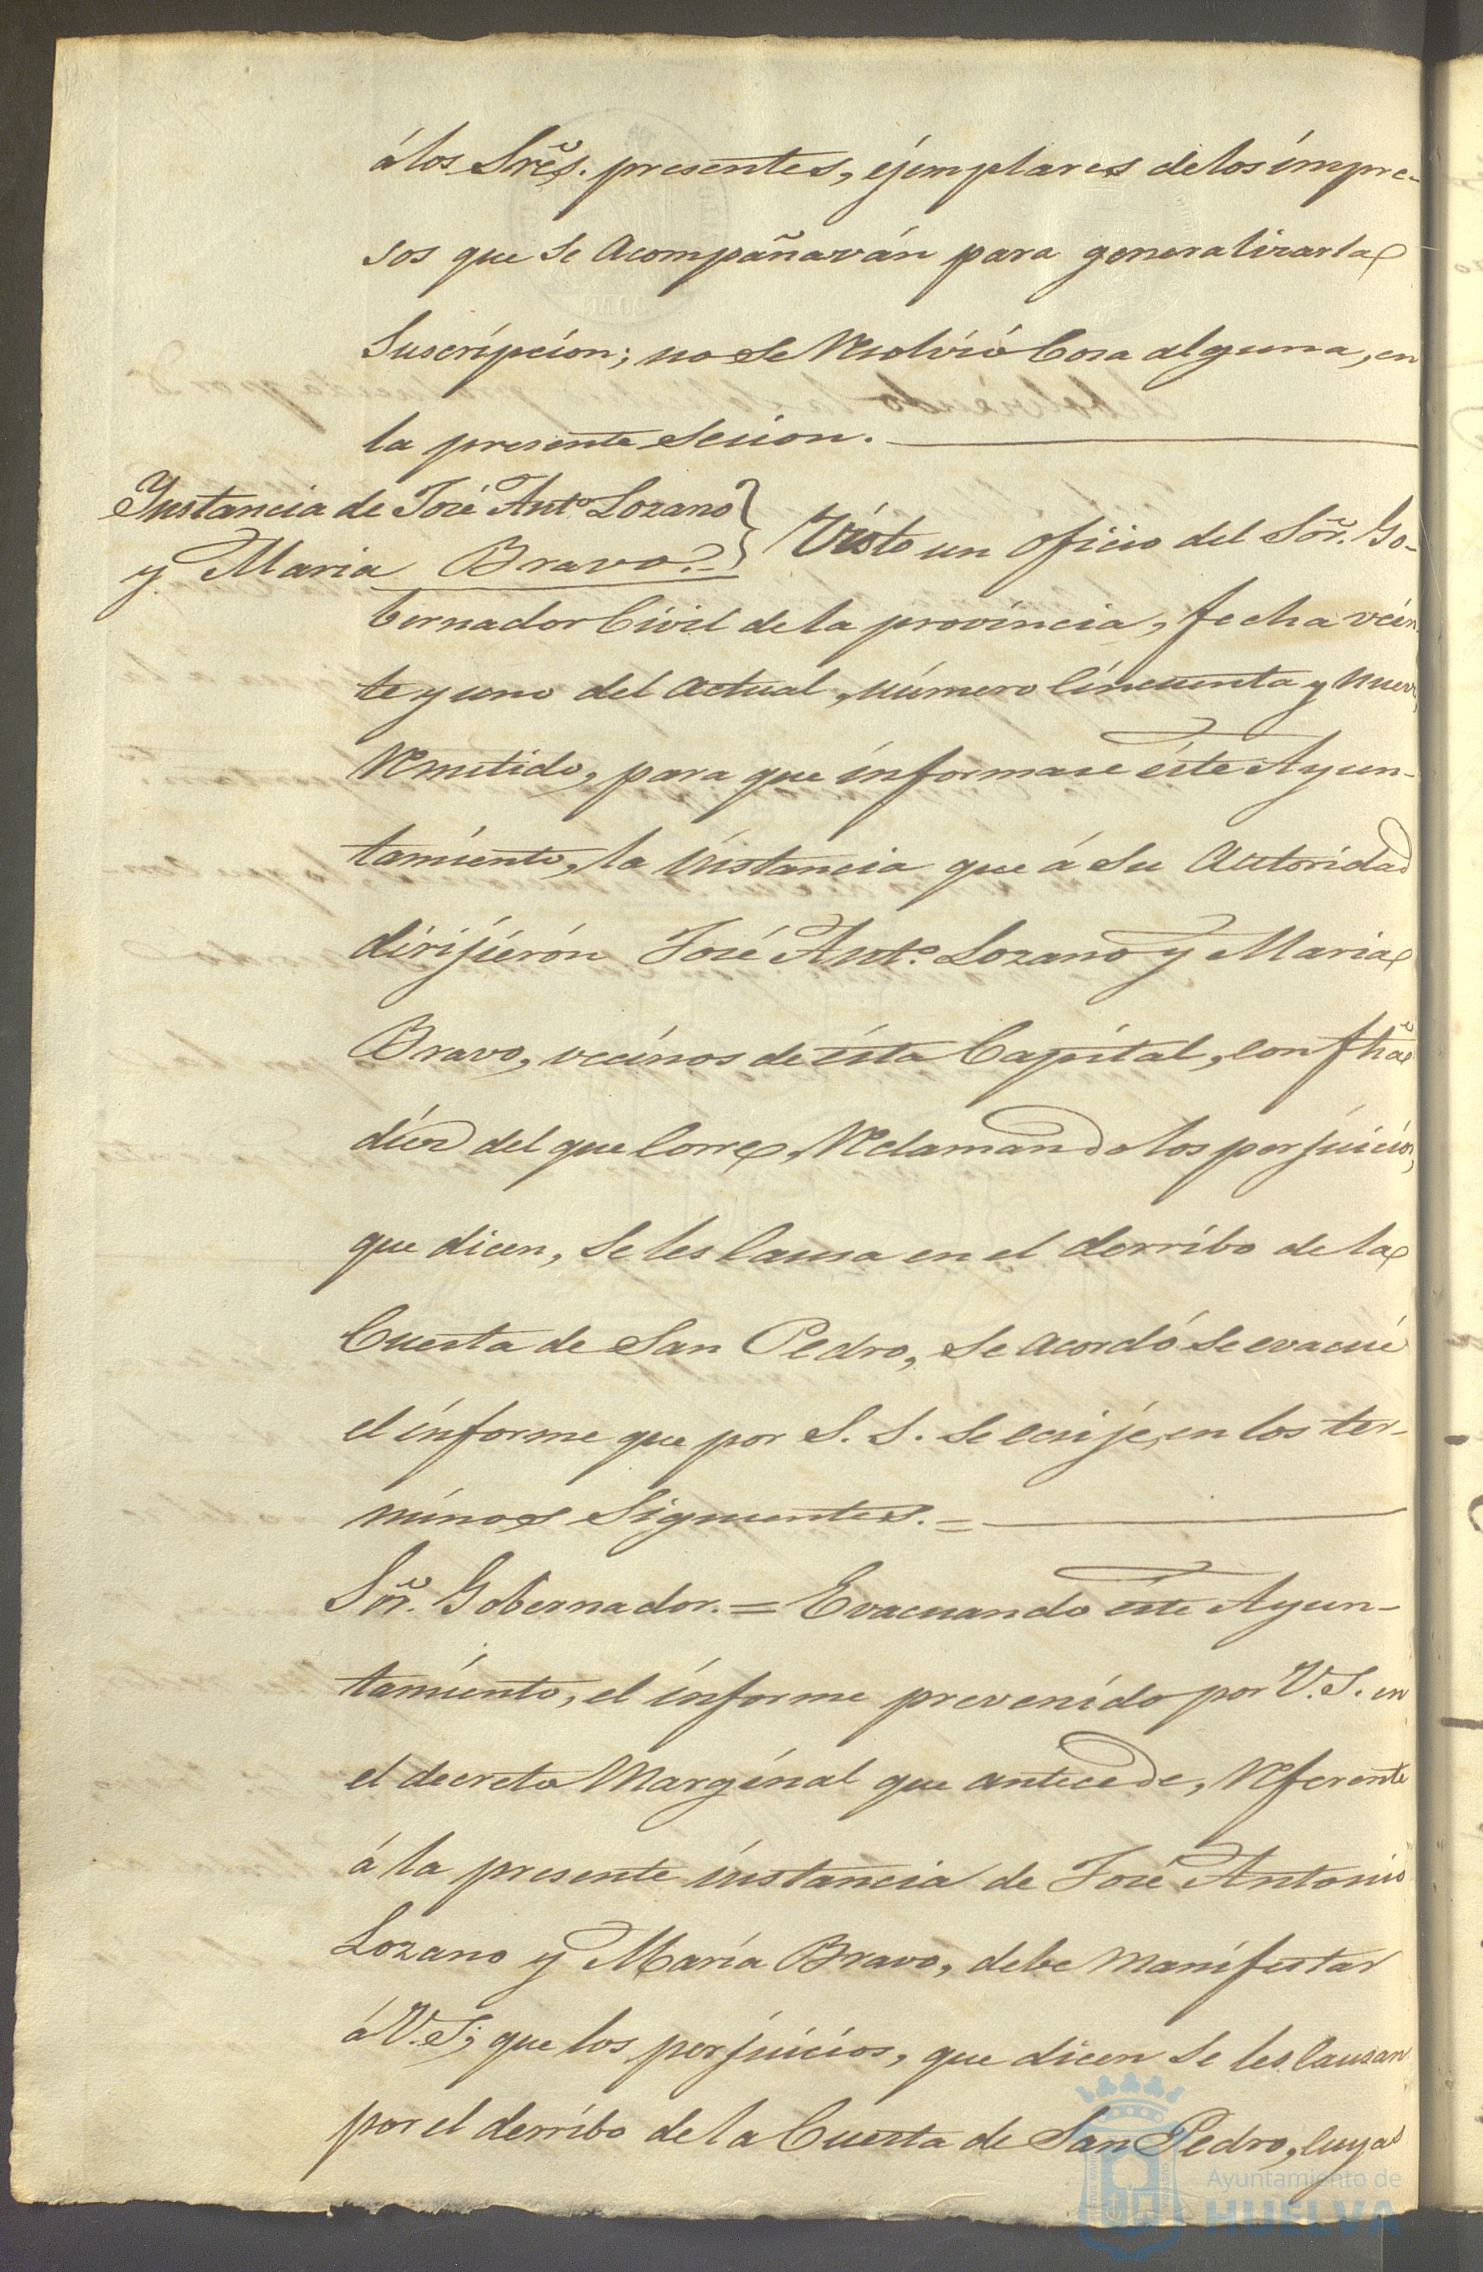 á los Sres. presentes, ejemplares de los impre-
sos que se acompañarán para generalizar la
Suscripcion; no se resolvió cosa alguna, en
la presente sesion.
Instancia de José Anto. Lozano
y Maria Bravo.
Visto un oficio del Sor. Go-
bernador Civil de la provincia, fecha vein-
te y uno del actual, número cincuenta y nueve,
remitido, para que informase éste Ayun-
tamiento, la instancia que á su autoridad
dirijierón José Anto. Lozano y Maria
Bravo, vecinos de ésta Capital, con fha
diez del que corre, reclamando los perjuicios,
que dicen, se les causa en el derribo de la
Cuesta de San Pedro, se acordó se evacué
el informe que por S. S. se ecsije, en los ter-
minos siguientes. =
Sor. Gobernador. = Evacuando éste Ayun-
tamiento, el informe prevenido por V. S. en
el decreto marginal que antecede, referente
á la presente instancia de José Antonio
Lozano y María Bravo, debe manifestar
á V. S; que los perjuicios, que dicen se les causan
por el derribo de la Cuesta de San Pedro, cuya
Ayuntamiento de
HUELVA